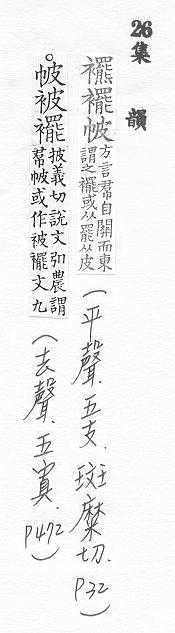 26
集韻
襬帔
方言帬自關而東
謂之襬或从罷从皮
(平聲.五支.班糜切.P32)
。帔被襬
披義切說文引農謂
帬帔或作被襬文九
(去聲.五寘.P472)